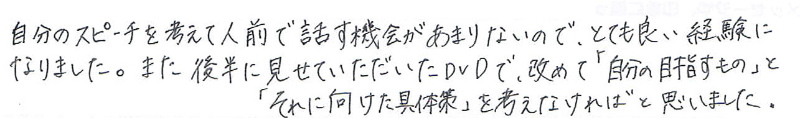 自分のスピーチを考えて人前で話す機会があまりないので、とても良い経験に
なりました。また後半に見せていただいたDVDで、改めて「自分の目指すもの」と
「それに向けた具体策」を考えなければと思いました。